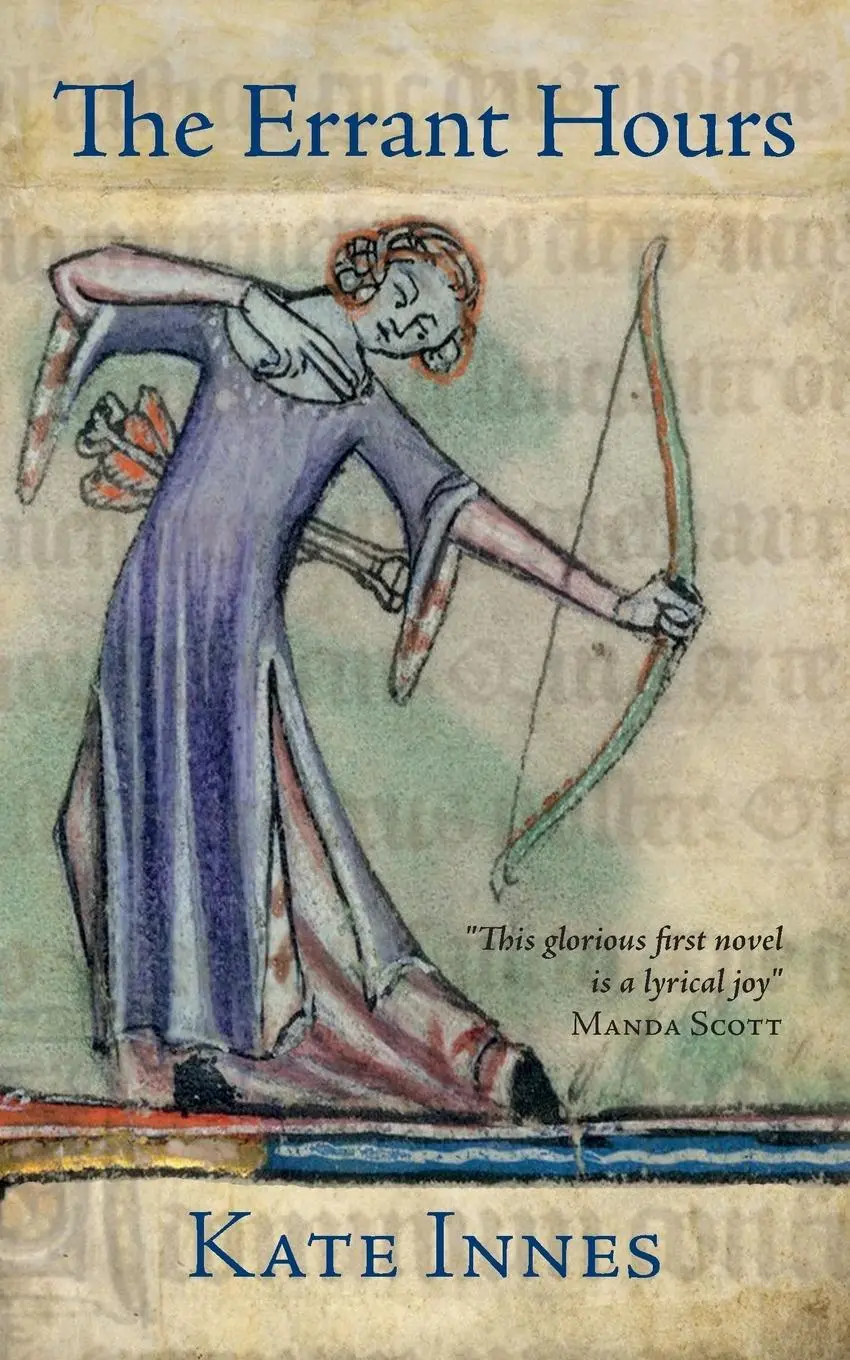 The Errant Hours
"This glorious first novel
is a lyrical joy"
Manda Scott
Kate Innes